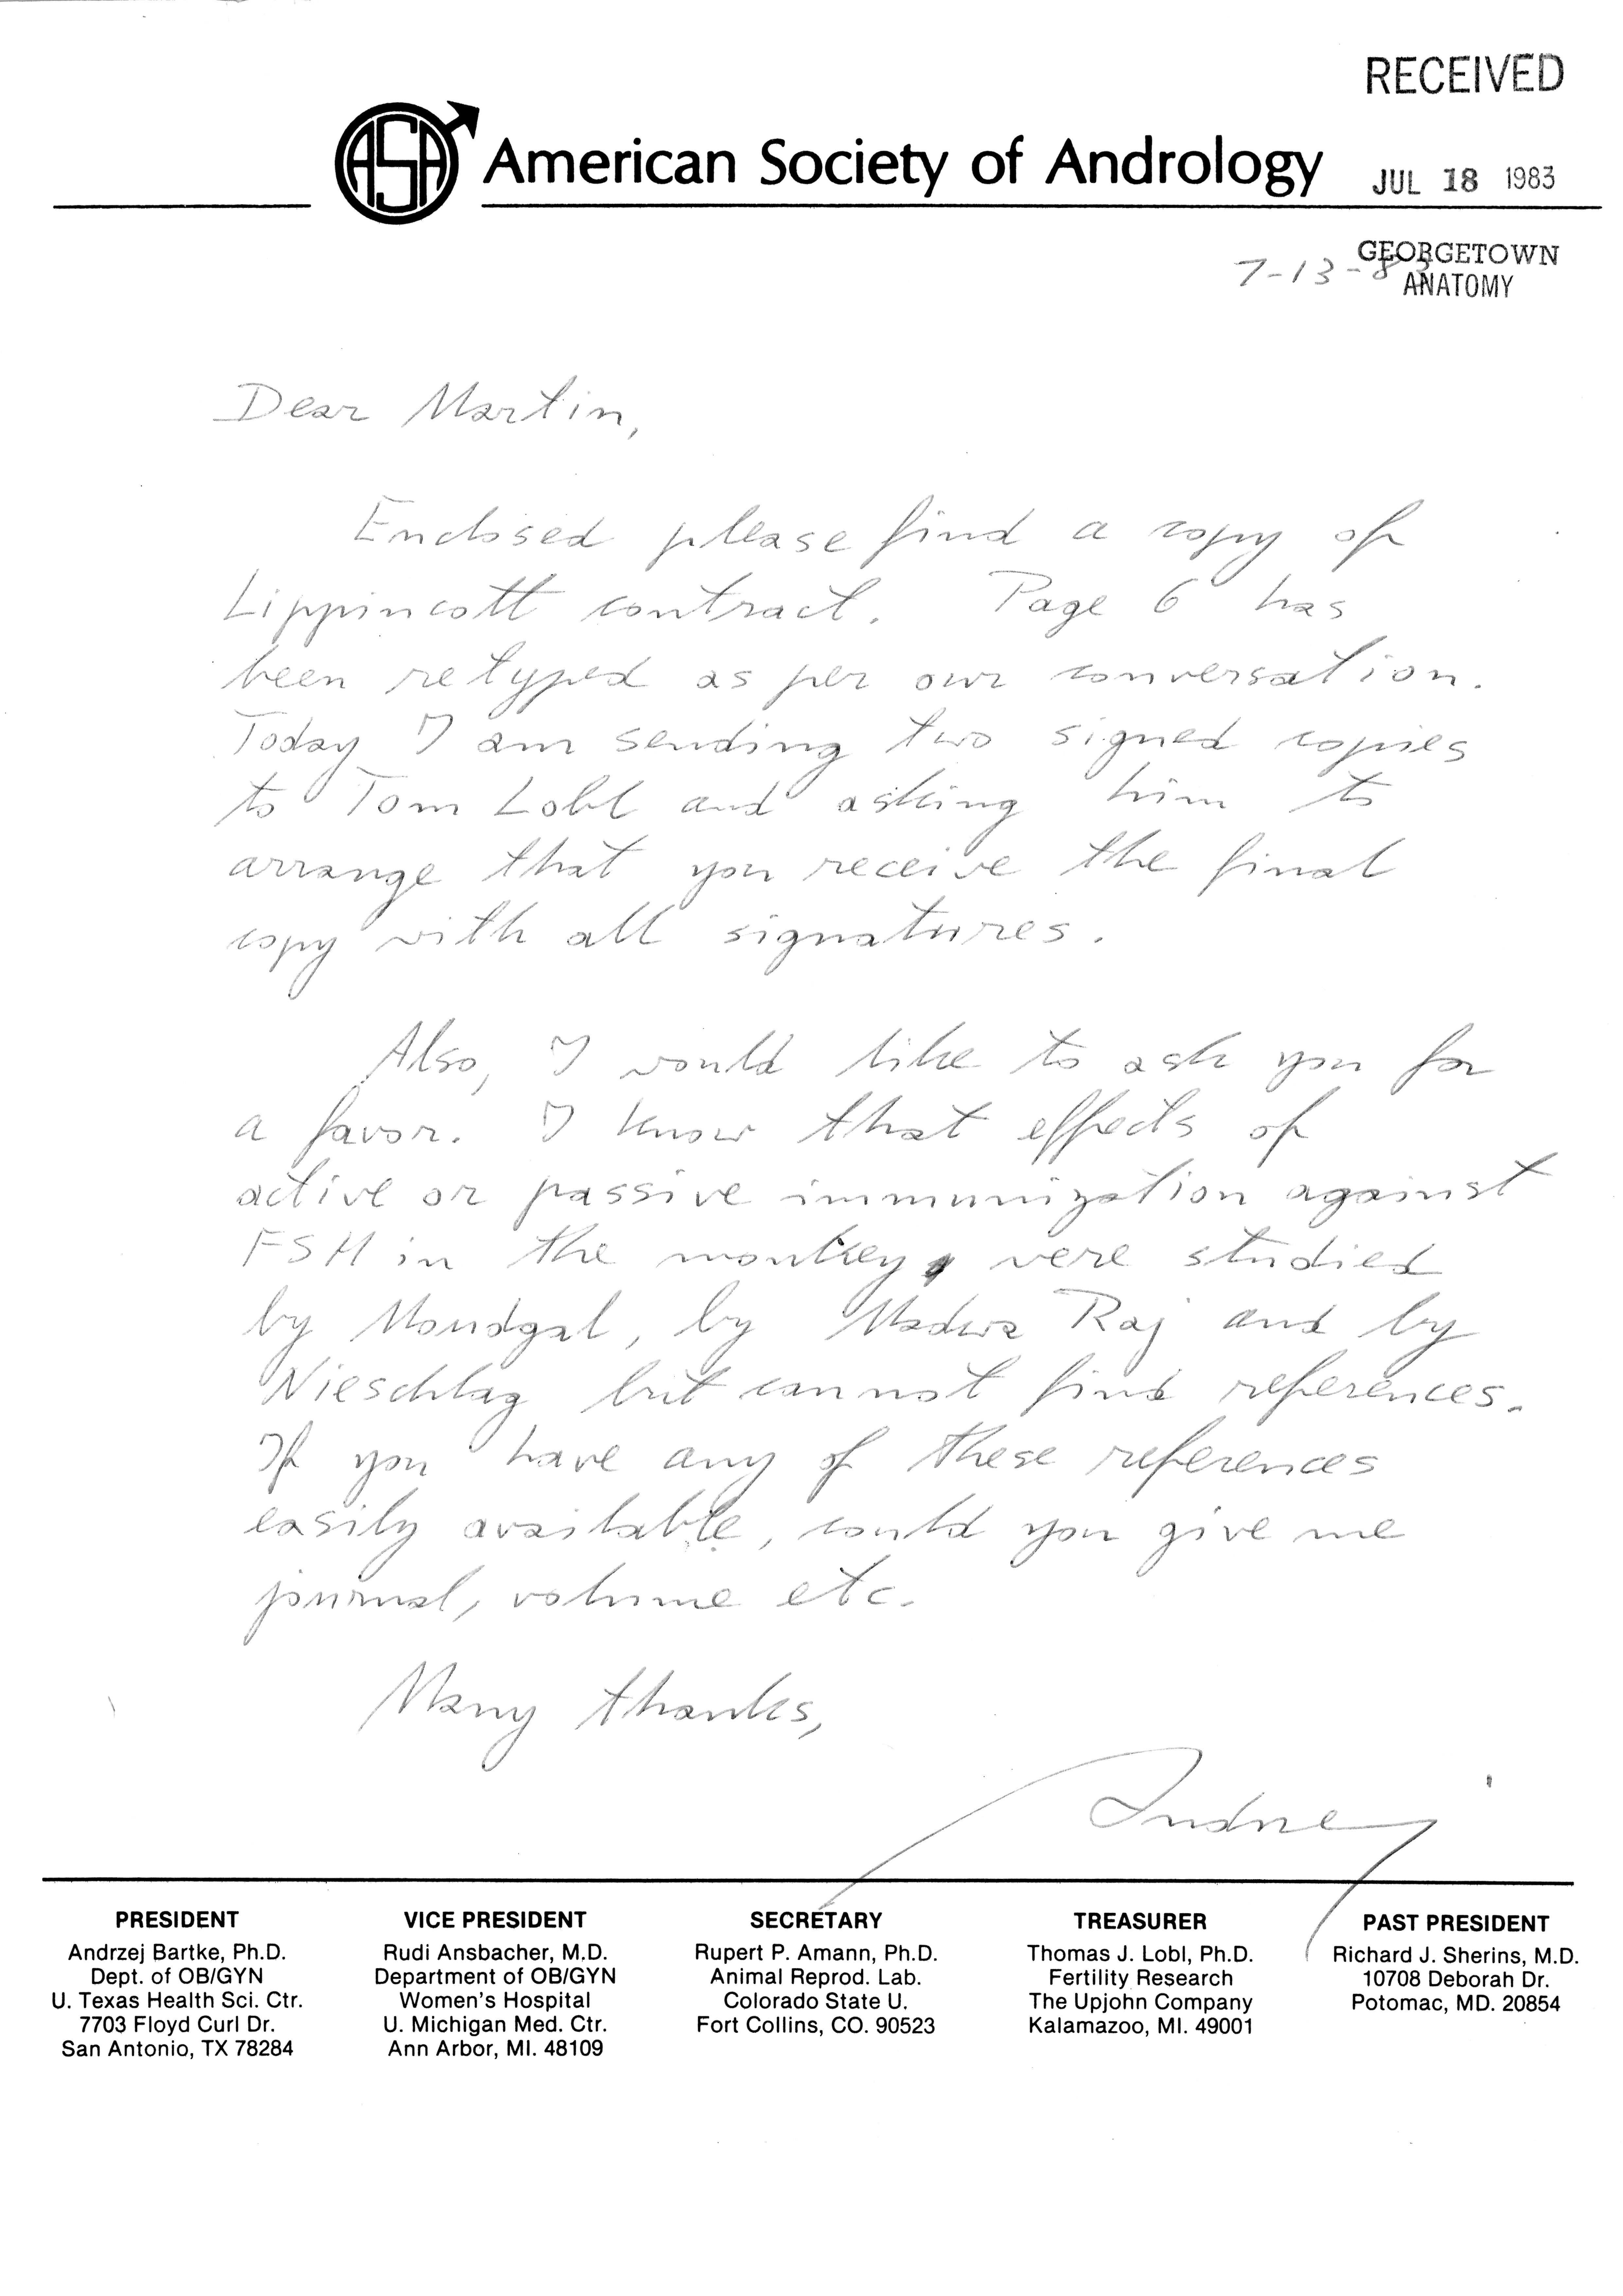 RECEIVED
ASA American Society of Andrology
JUL 18 1983
GEORGETOWN
ANATOMY
7-13-83
Dear Martin,
Enclosed please find a copy of
Lippincott contract. Page 6 has
been retyped as per our conversation.
Today I am sending two signed copies
to Tom Lobl and asking him to
arrange that you receive the final
copy with all signatures.
Also, I would like to ask you for
a favor. I know that effects of
active or passive immunization against
FSH in the monkey were studied
by Moudgal, by Madwa Raj and by
Nieschlag but cannot find references.
If you have any of these references
easily available, could you give me
journal, volume etc.
Many thanks,
Andrzej
PRESIDENT
Andrzej Bartke, Ph.D.
Dept. of OB/GYN
U. Texas Health Sci. Ctr.
7703 Floyd Curl Dr.
San Antonio, TX 78284
VICE PRESIDENT
Rudi Ansbacher, M.D.
Department of OB/GYN
Women's Hospital
U. Michigan Med. Ctr.
Ann Arbor, MI. 48109
SECRETARY
Rupert P. Amann, Ph.D.
Animal Reprod. Lab.
Colorado State U.
Fort Collins, CO. 90523
TREASURER
Thomas J. Lobl, Ph.D.
Fertility Research
The Upjohn Company
Kalamazoo, MI. 49001
PAST PRESIDENT
Richard J. Sherins, M.D.
10708 Deborah Dr.
Potomac, MD. 20854